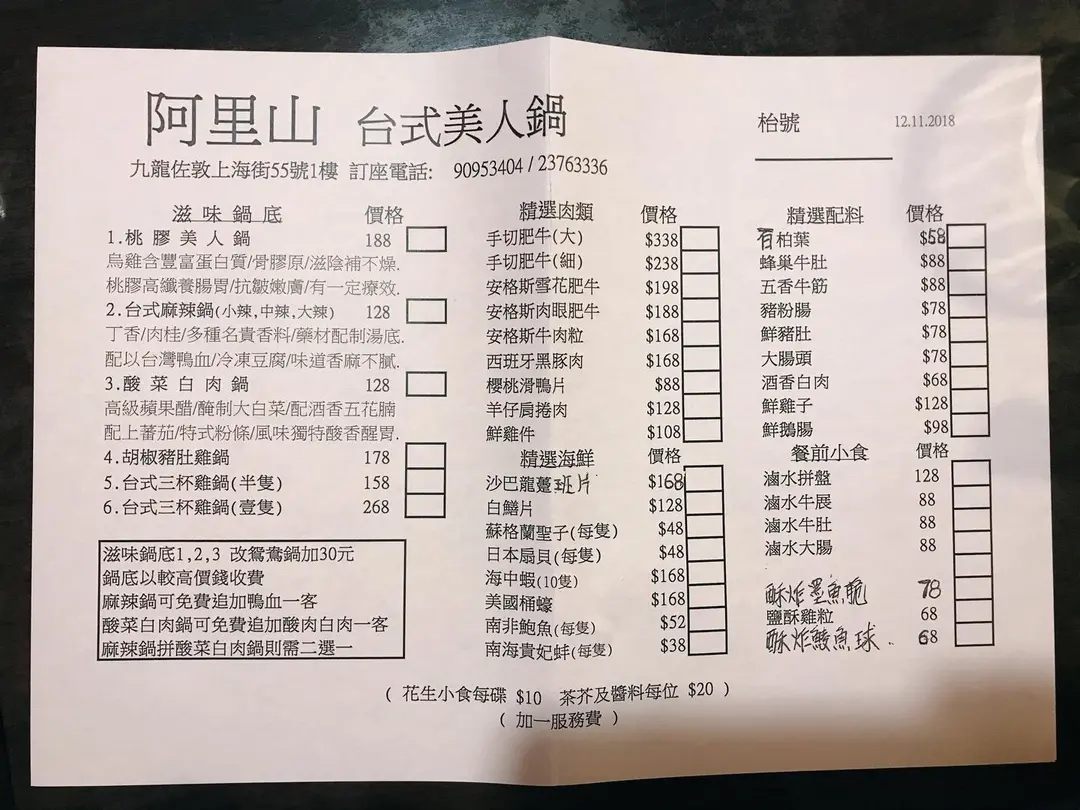 阿里山 台式美人鍋
枱號
12.11.2018
九龍佐敦上海街55號1樓 訂座電話: 90953404 / 23763336
滋味鍋底 價格
1.桃膠美人鍋 188
烏雞含豐富蛋白質/骨膠原/滋陰補不燥.
桃膠高纖養腸胃/抗皺嫩膚/有一定療效.
2.台式麻辣鍋(小辣,中辣,大辣) 128
丁香/肉桂/多種名貴香料/藥材配制湯底.
配以台灣鴨血/冷凍豆腐/味道香麻不膩.
3.酸菜白肉鍋 128
高級蘋果醋/醃制大白菜/配酒香五花腩
配上蕃茄/特式粉條/風味獨特酸香醒胃.
4.胡椒豬肚雞鍋 178
5.台式三杯雞鍋(半隻) 158
6.台式三杯雞鍋(壹隻) 268
滋味鍋底1,2,3 改鴛鴦鍋加30元
鍋底以較高價錢收費
麻辣鍋可免費追加鴨血一客
酸菜白肉鍋可免費追加酸肉白肉一客
麻辣鍋拼酸菜白肉鍋則需二選一
精選肉類 價格
手切肥牛(大) $338
手切肥牛(細) $238
安格斯雪花肥牛 $198
安格斯肉眼肥牛 $188
安格斯牛肉粒 $168
西班牙黑豚肉 $168
櫻桃滑鴨片 $88
羊仔肩捲肉 $128
鮮雞件 $108
精選海鮮 價格
沙巴龍躉班片 $168
白鱔片 $128
蘇格蘭聖子(每隻) $48
日本扇貝(每隻) $48
海中蝦(10隻) $168
美國桶蠔 $168
南非鮑魚(每隻) $52
南海貴妃蚌(每隻) $38
精選配料 價格
柏葉 $58
蜂巢牛肚 $88
五香牛筋 $88
豬粉腸 $78
鮮豬肚 $78
大腸頭 $78
酒香白肉 $68
鮮雞子 $128
鮮鵝腸 $98
餐前小食 價格
滷水拼盤 128
滷水牛展 88
滷水牛肚 88
滷水大腸 88
酥炸墨魚脆 78
鹽酥雞粒 68
酥炸鯪魚球 68
( 花生小食每碟 $10 茶芥及醬料每位 $20 )
( 加一服務費 )